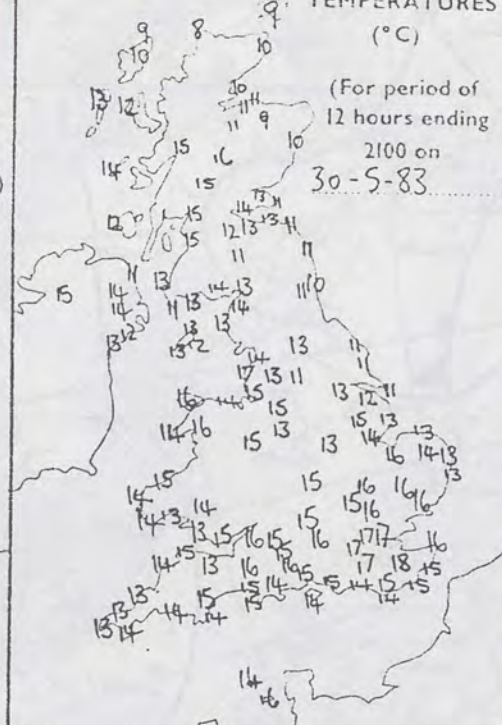 TEMPERATURES
(°C)
(For period of
12 hours ending
2100 on
30-5-83
9 8 9
10 10
13 12 10 11 11
11 9
14 15 16 10
15
12 15 13 11
14 13
15 12 13 11
11 11
15 11 13 14 13 11 10
14 11 13 14
14 13
13 12 13
13 12 14 13 11
17 13 11 11
16 14 15 13 12 11
14 16 15 15 13
15 13 13 14 13
16 14 13
15 15 13
14 14 16 16
14 13 15 16 16
13 15 16 15 15 17 17
14 15 15 16 17 16
13 16 16 17 18 15
13 15 15 14 15 15 14 15 15
13 14 14 15 14 14
13 14 14
14
16